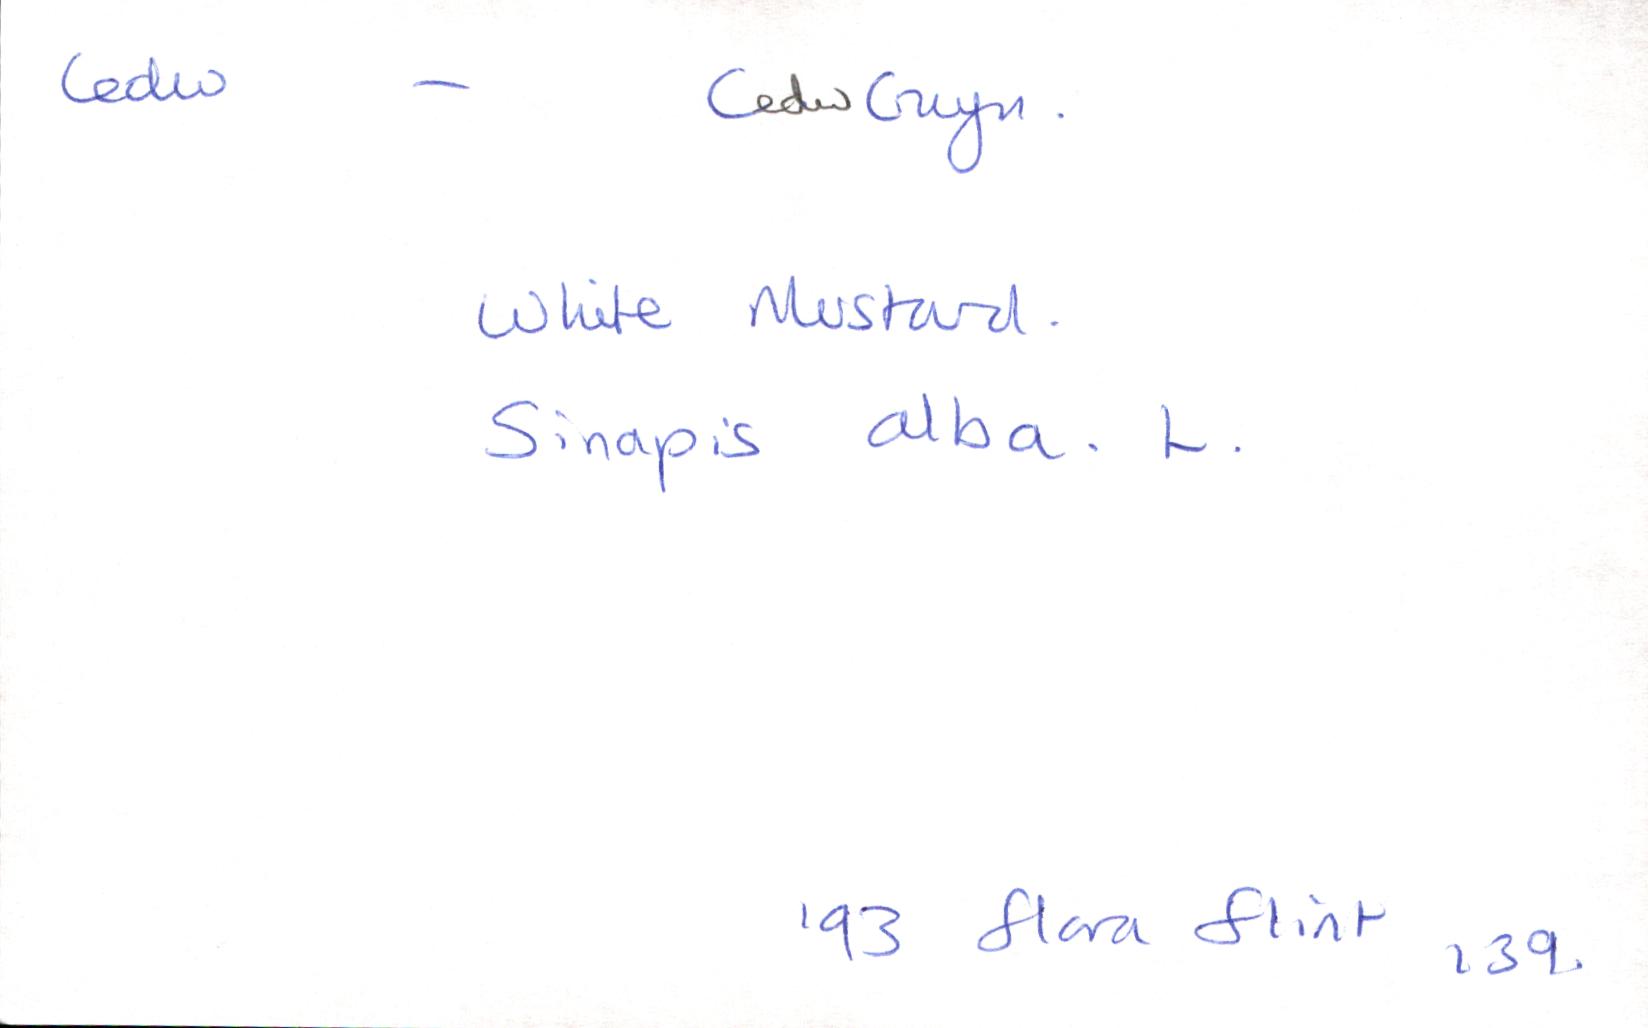 Cedw – Cedw Gwyn.
White Mustard.
Sinapis alba. L.
'93 Flora Flint 139.